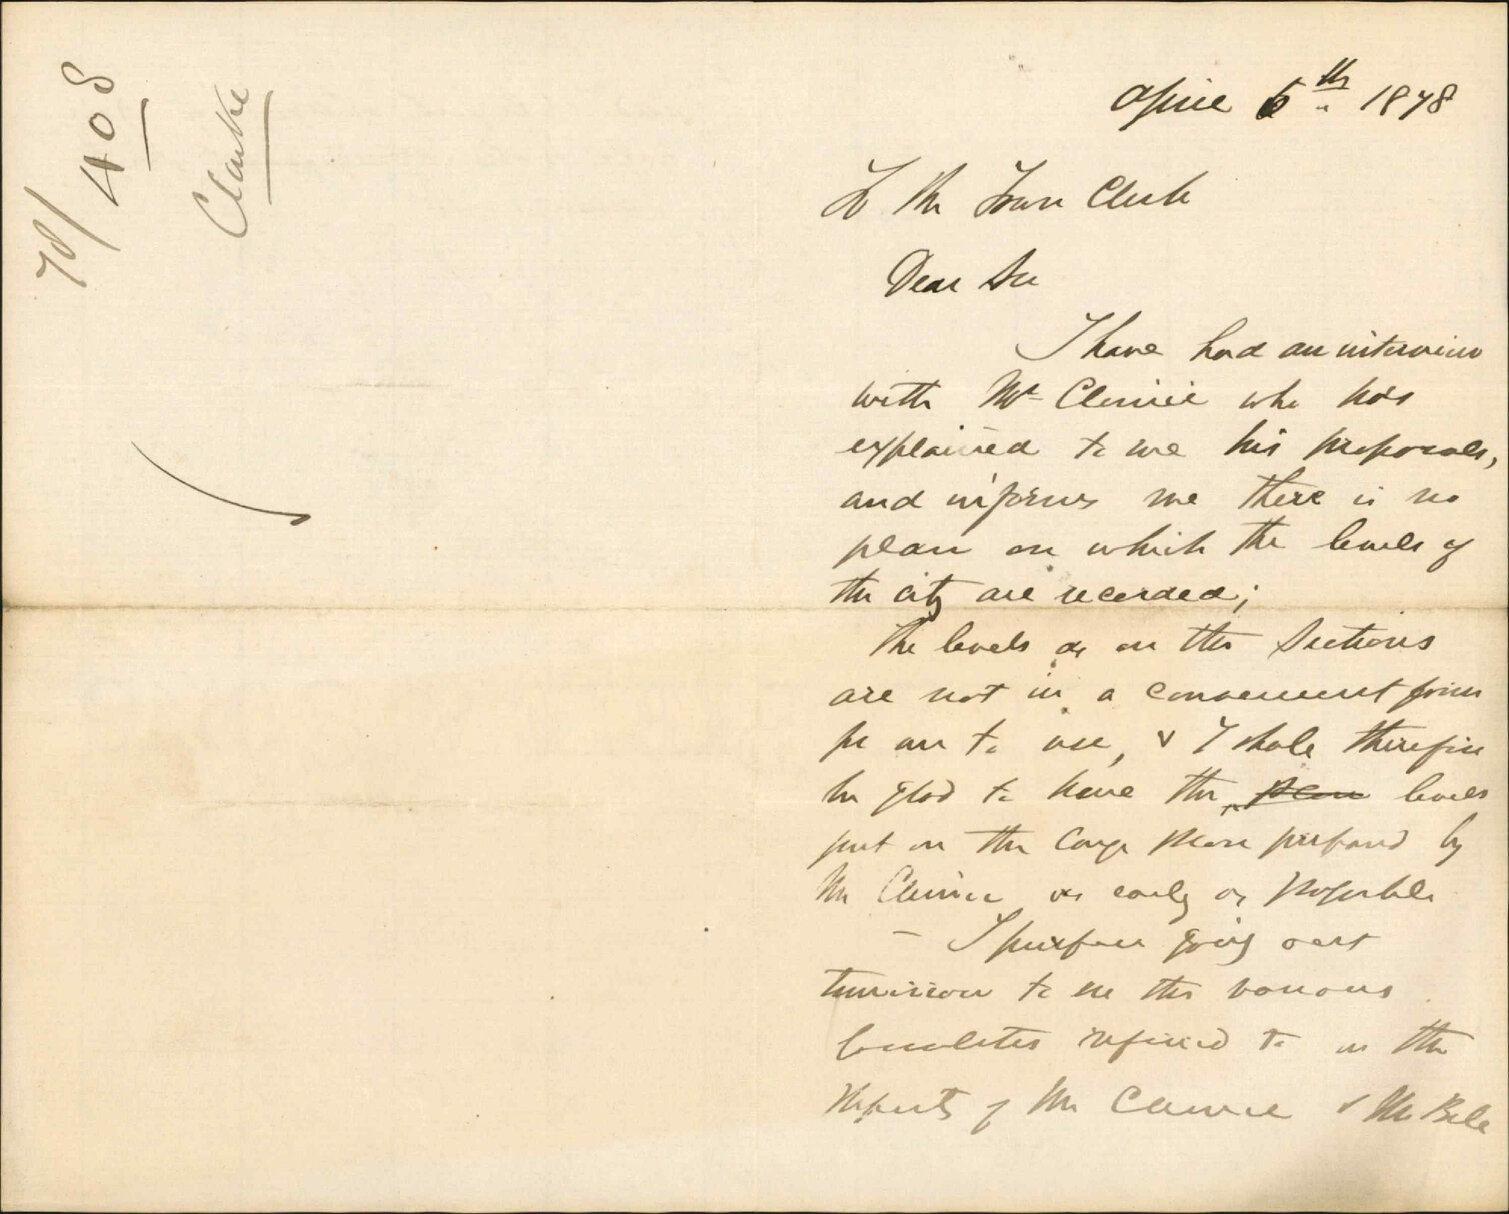 78/408
Clarke
April 5th 1878
To the Town Clerk
Dear Sir
I have had an interview
with Mr Climie who has
explained to me his proposals,
and informs me there is no
plan on which the levels of
the city are recorded;
The levels as on the Sections
are not in a convenient form
for me to use, & I shall therefore
be glad to have the plan levels
put on the large plan prepared by
Mr Climie as early as possible
– I purpose going out
tomorrow to see the various
localities referred to in the
reports of Mr Climie & Mr Bell